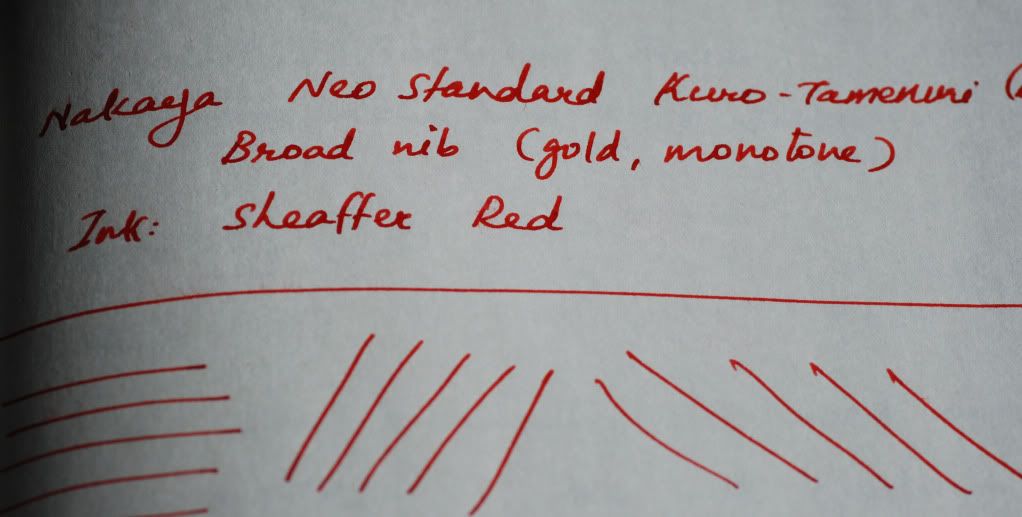 Nakaya Neo Standard Kuro-Tamenuri (
Broad nib (gold, monotone)
Ink: Sheaffer Red